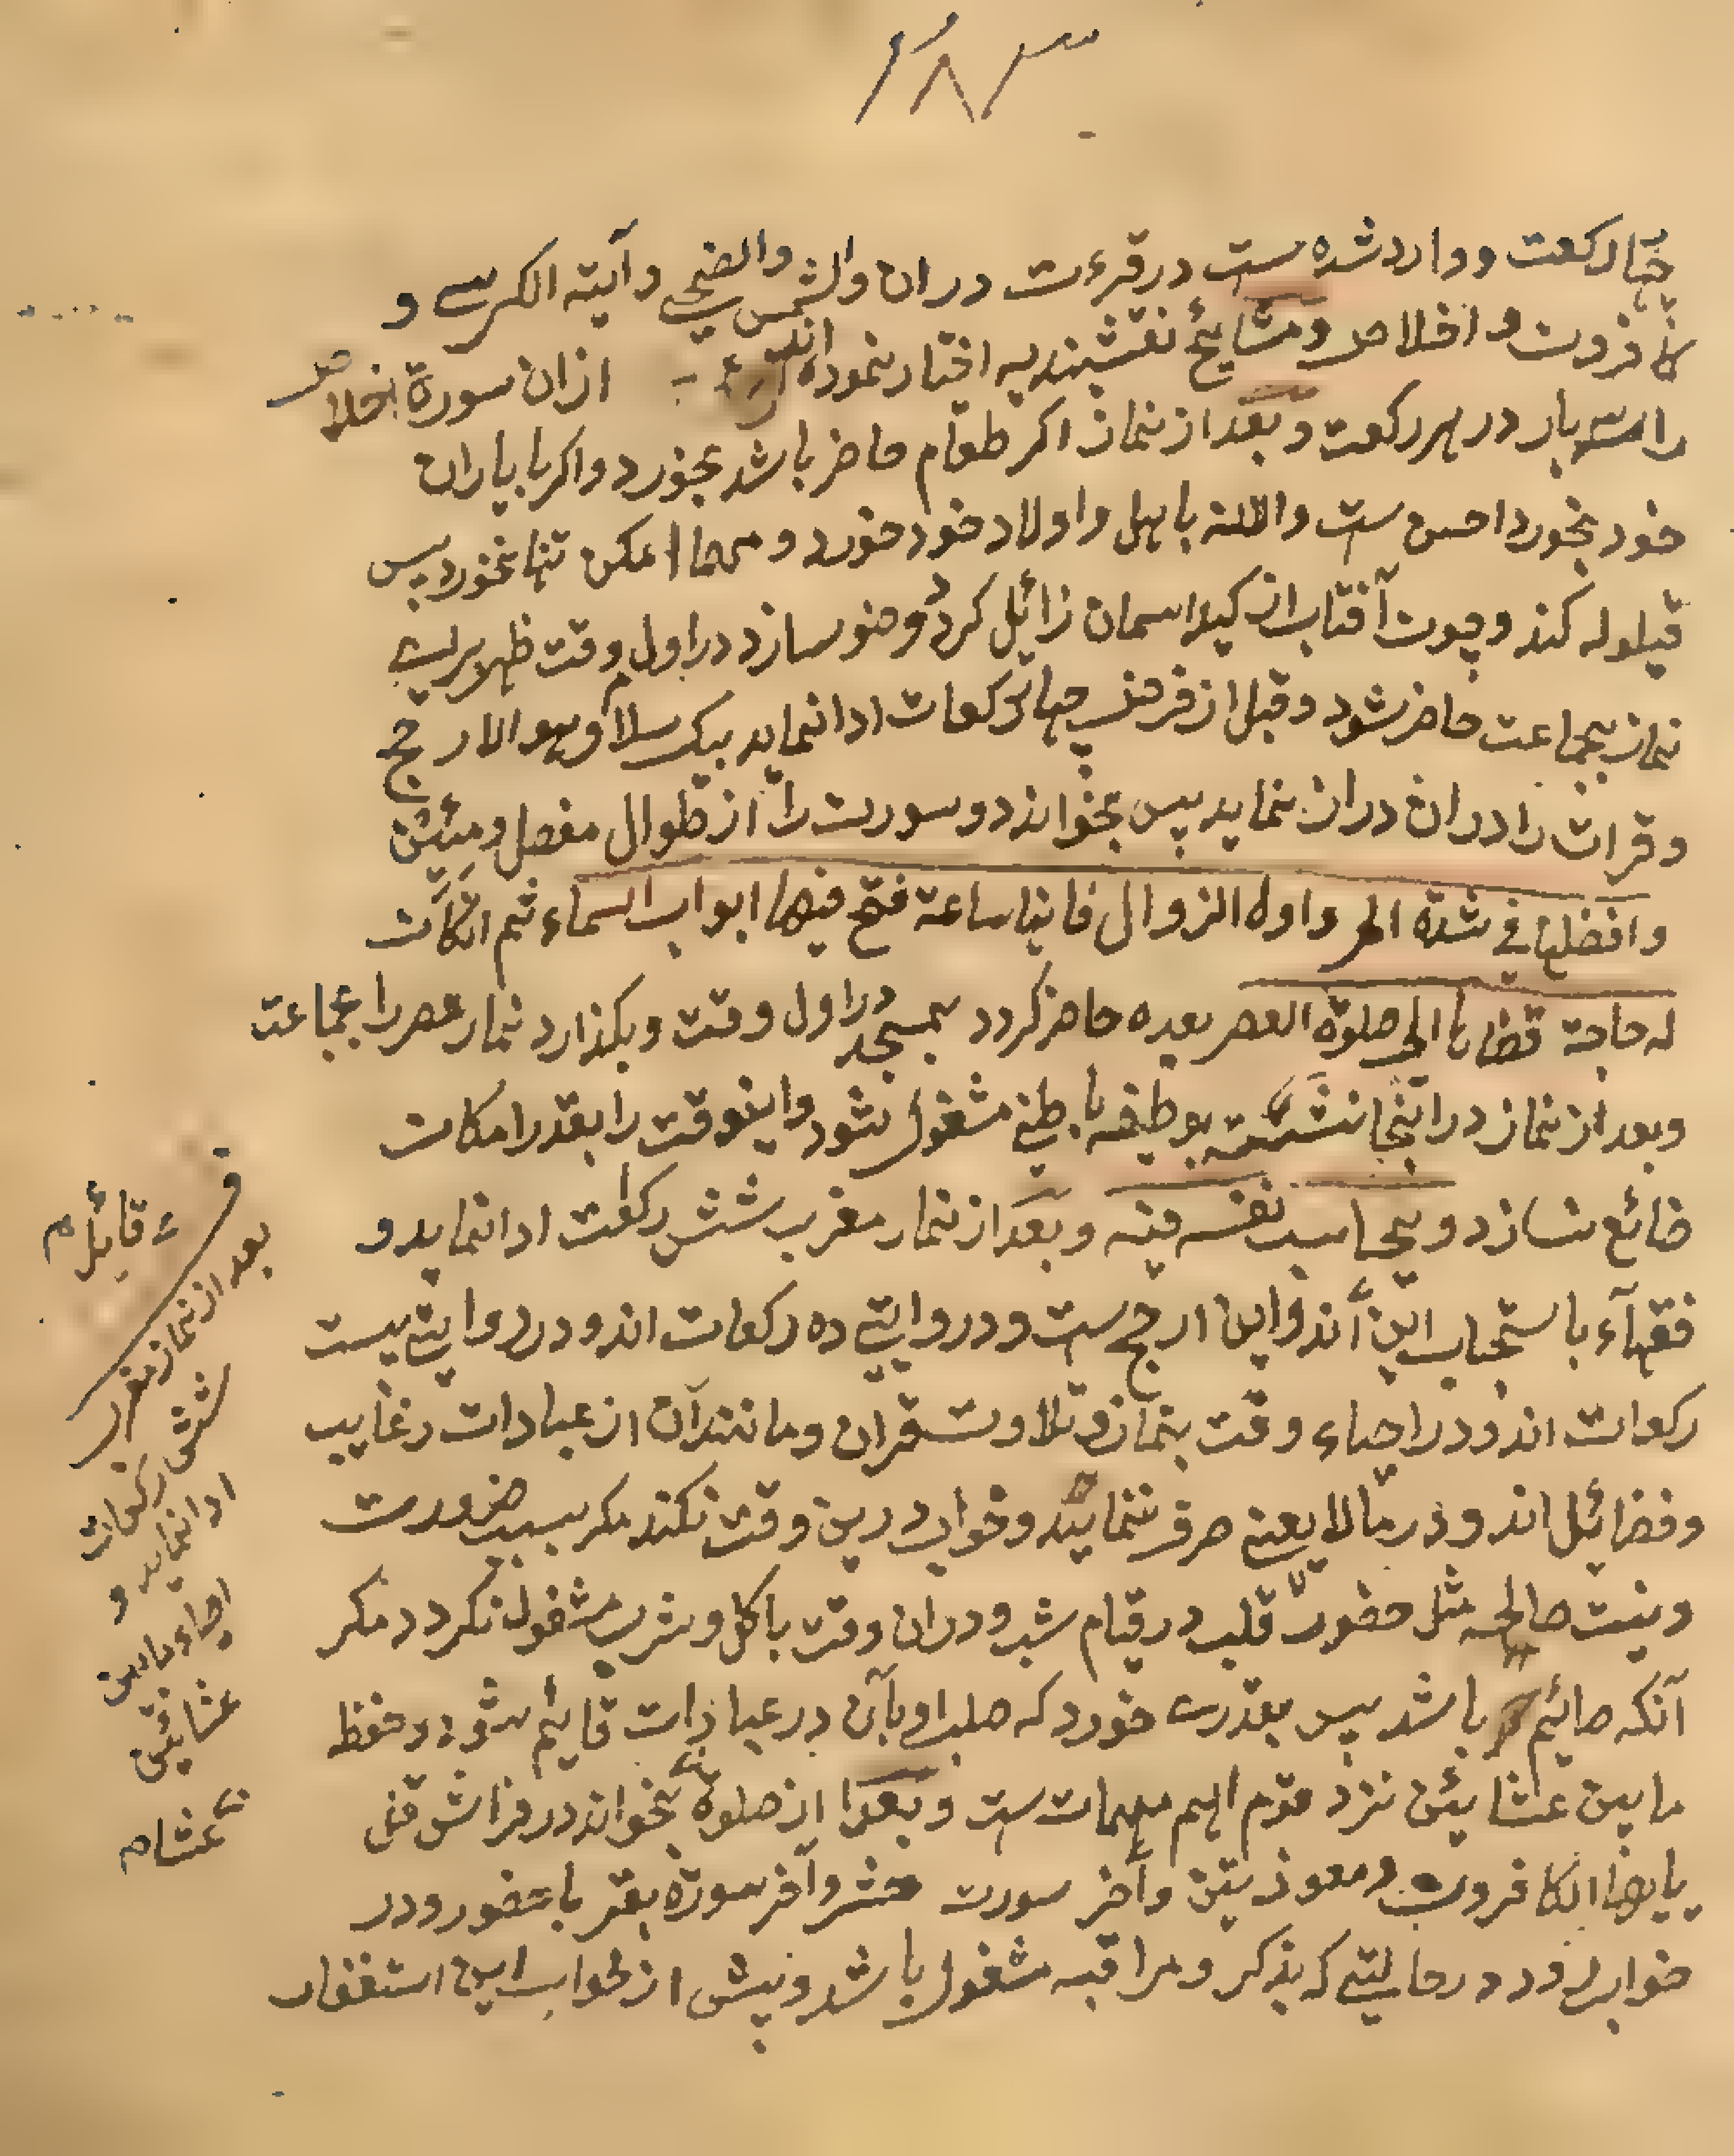 ۱۸۳
چهار رکعت و وارد شده ست در قرءت دران والشمس والضحی و آیته الکرسے و
کافرون و اخلاص و مشایخ نقشبندیه اختیار نموده اند ازان سورة اخلاص
را سه بار در هر رکعت و بعد از نماز اکر طعام حاضر باشد بخورد و اکر با یاران
خود بخورد احسن ست والا باهل و اولاد خود خورد و مهما امکن تنها نخورد پس
قیلوله کند و چون آفتاب از کبد اسمان زائل کردد وضو سازد در اول وقت ظهر برای
نماز بجماعت حاضر شود و قبل از فرض چهار رکعات ادا نماید بیک سلام و هو الارجح
و قرات را دران دراز نماید پس بخواند دو سورت را از طوال مفصل و مئین
و افضلها فی شدة الحر و اول الزوال فانها ساعة فتح فیها ابواب السماء ثم ان کانت
له حاجة قضاها الی صلوة العصر بعده حاضر کردد بمسجد در اول وقت و بکذارد نماز عصر را بجماعت
و بعد از نماز در آنجا نشسته بوظیفه باطنی مشغول شود و اینوقت را بقدر امکان
ضائع نسازد و یحاسب نفسه فیه و بعد از نماز مغرب شش رکعت ادا نماید و
فقهآء باستحباب این اند و این ارجح ست و در روایتی ده رکعات اند و در روایتی بیست
رکعات اند و در احیاء وقت بنماز و تلاوت قران و مانند آن از عبادات رغایب
و فضائل اند و در مالا یعنی صرف ننماید و خواب درین وقت نکند مکر بسبب ضرورت
و نیت صالحه مثل حضور قلب در قیام شب و دران وقت باکل و شرب مشغول نکردد مکر
آنکه صائم باشد پس بقدری خورد که صلب او بآن در عبادات قایم شود و حفظ
ما بین عشایئن نزد قوم اهم مهمات ست و بعد از صلوة بخواند در فراش قل
یایها الکافرون و معوذیتن و آخر سورت حشر و آخر سورة بقر با حضور و در
خواب رود در حالیتی که بذکر و مراقبه مشغول باشد و پیش از خواب این استغفار
قایل م
بعد از نماز مغرب
شش رکعات
ادا نماید و
احیاء مابین
عشایئن
عشا م